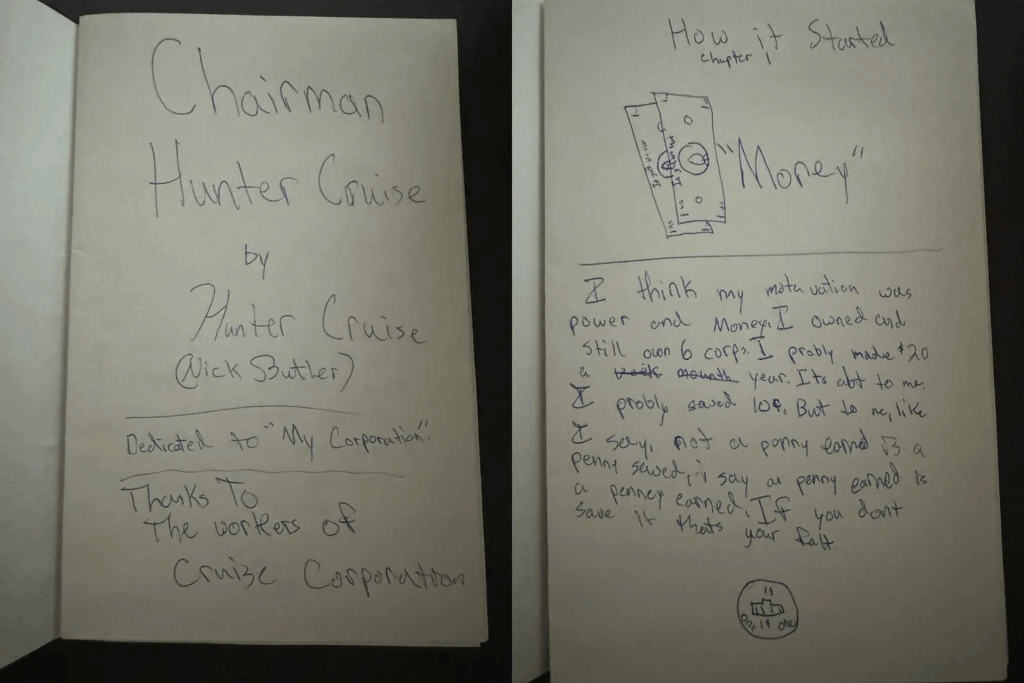 Chairman
Hunter Cruise
by
Hunter Cruise
(Nick Butler)
Dedicated to "My Corporation".
Thanks To
The workers of
Cruise Corporation
How it Started
chapter 1
"Money"
I think my motavation was
power and Money. I owned and
still own 6 corps. I probly made $20
a week mounth year. Its abt to me.
I probly saved 10¢. But to me, like
I say, not a penny earned is a
penny saved, i say a penny earned is
a penney earned. If you dont
save it thats your falt.
1¢
one 1¢ one